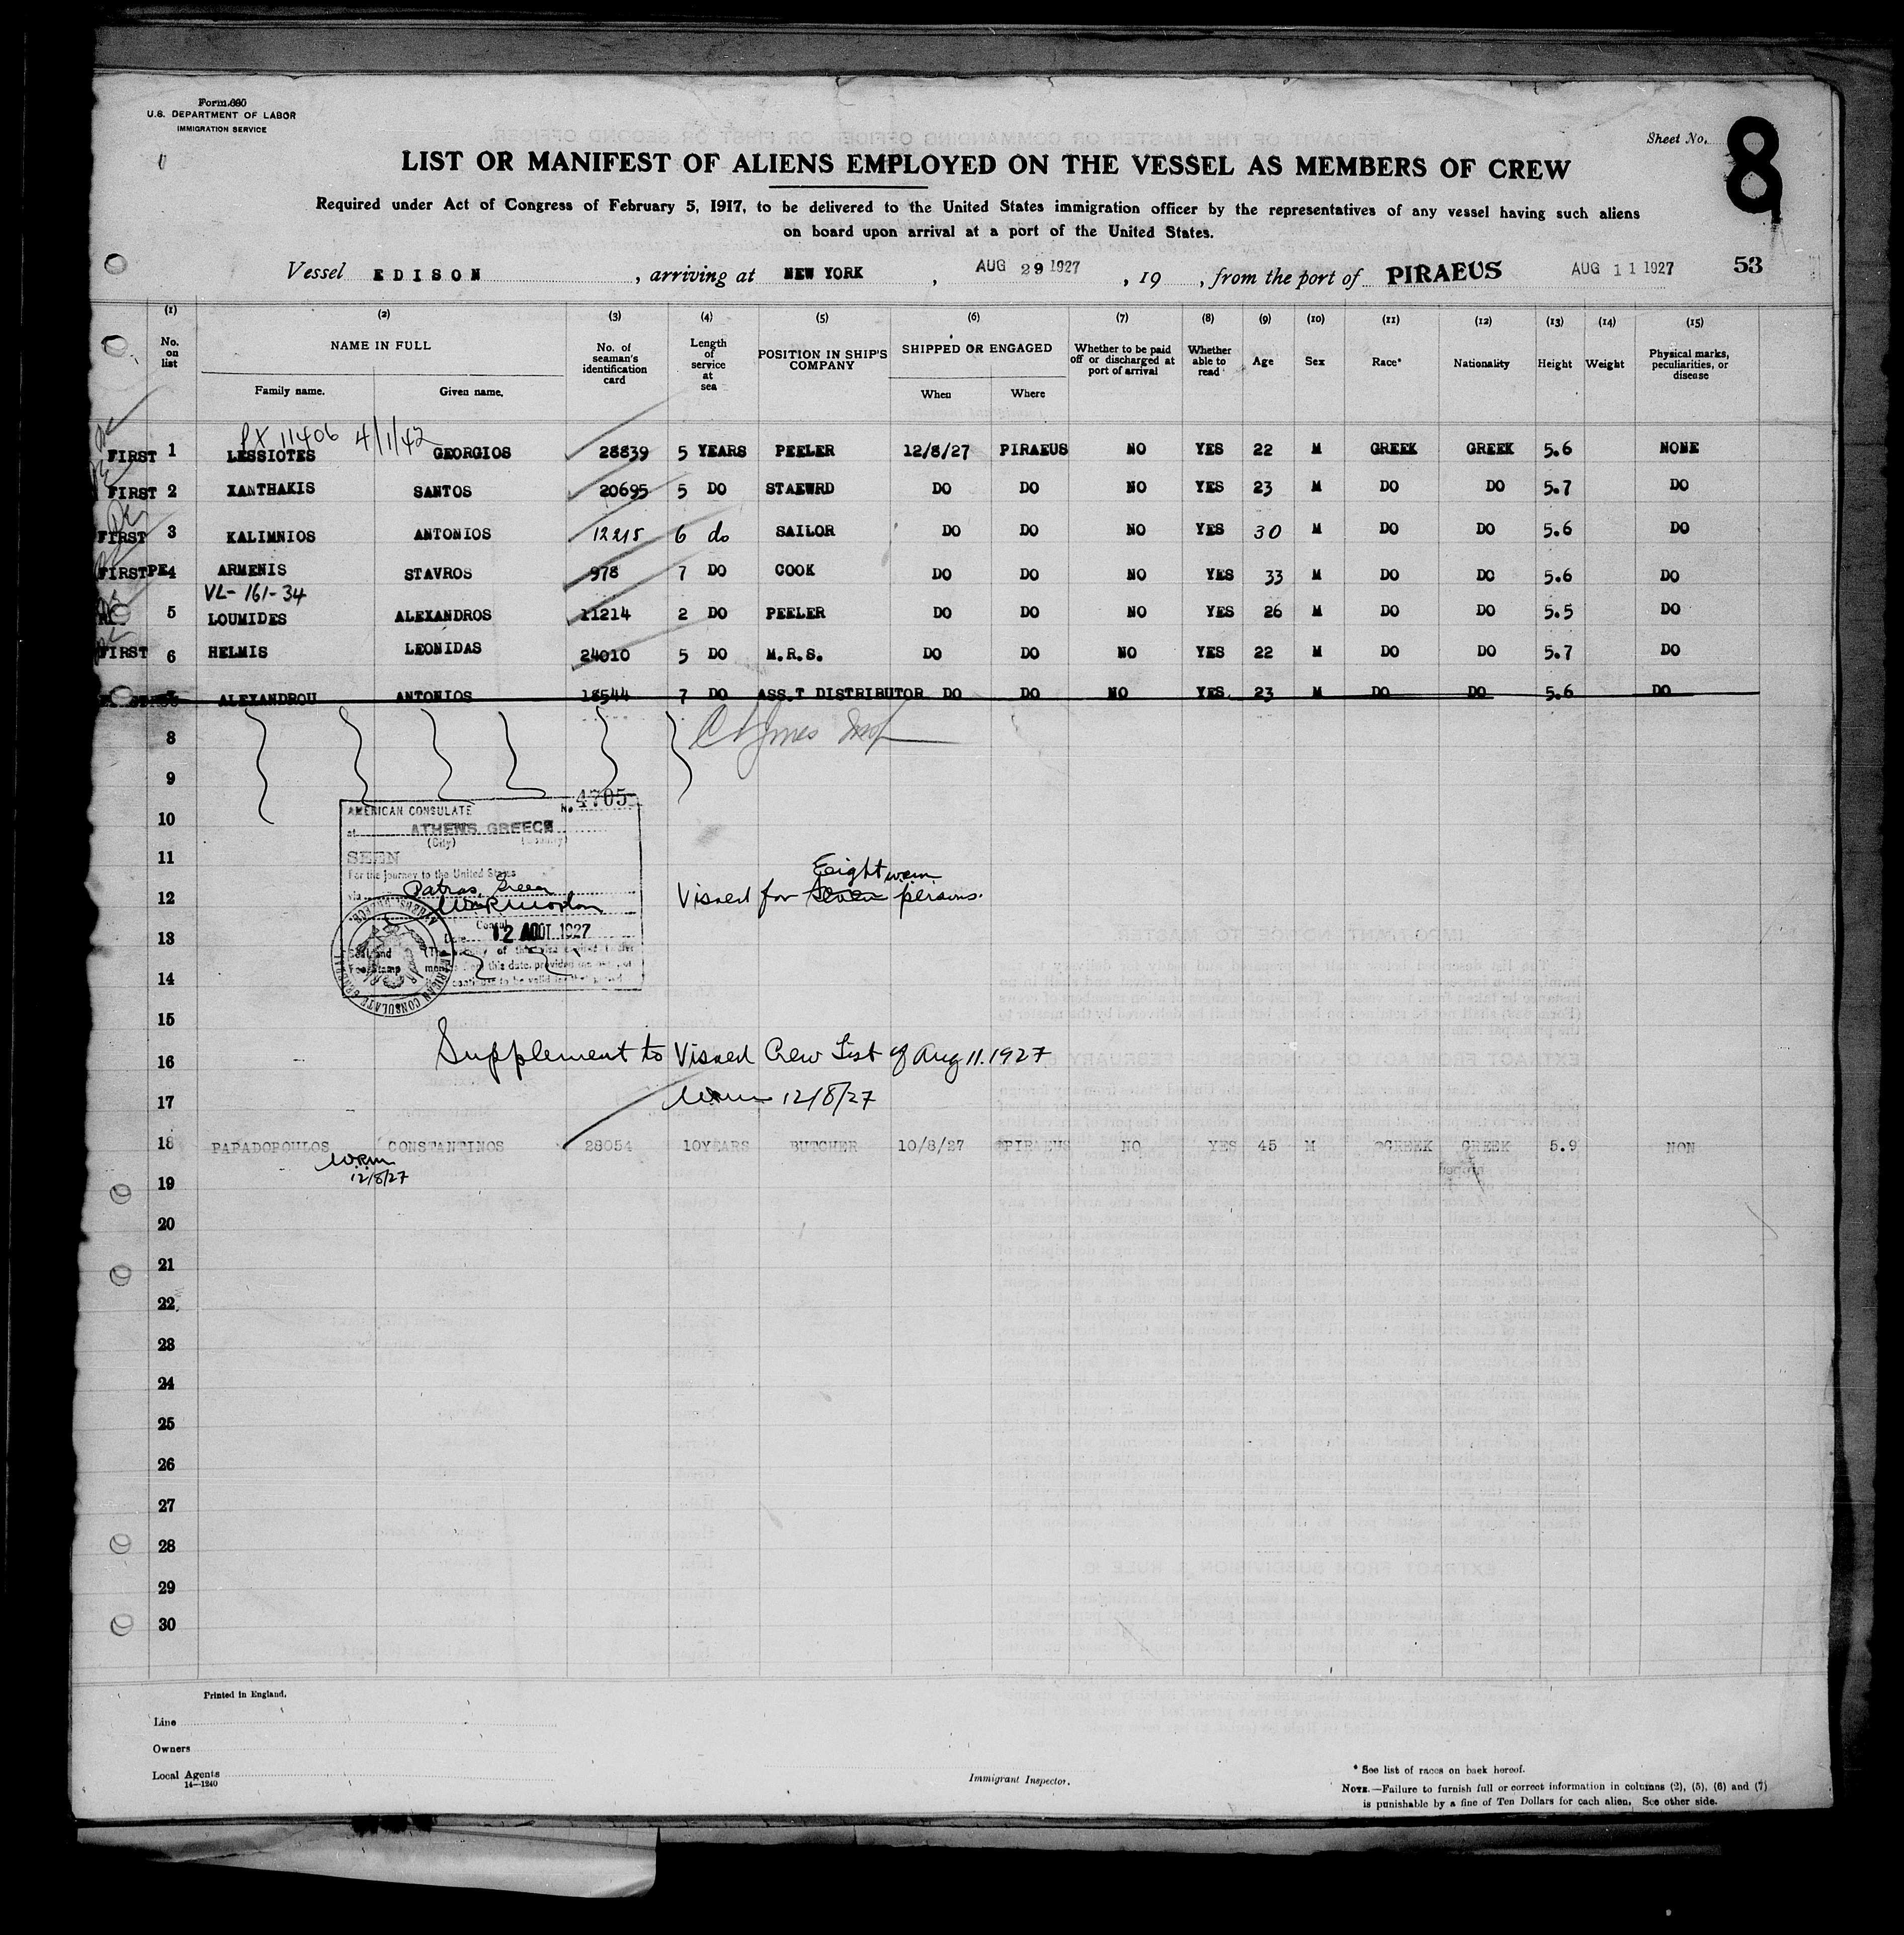 Form 680
U.S. DEPARTMENT OF LABOR
IMMIGRATION SERVICE
Sheet No. 8
LIST OR MANIFEST OF ALIENS EMPLOYED ON THE VESSEL AS MEMBERS OF CREW
Required under Act of Congress of February 5, 1917, to be delivered to the United States immigration officer by the representatives of any vessel having such aliens
on board upon arrival at a port of the United States.
Vessel EDISON, arriving at NEW YORK, AUG 29 1927, 19 , from the port of PIRAEUS AUG 11 1927 53
(1) (2) (3) (4) (5) (6) (7) (8) (9) (10) (11) (12) (13) (14) (15)
No. on list NAME IN FULL Family name. Given name. No. of seaman's identification card Length of service at sea POSITION IN SHIP'S COMPANY SHIPPED OR ENGAGED When Where Whether to be paid off or discharged at port of arrival Whether able to read Age Sex Race* Nationality Height Weight Physical marks, peculiarities, or disease
PX 11406 4/1/42
FIRST 1 LESSIOTES GEORGIOS 28839 5 YEARS PEELER 12/8/27 PIRAEUS NO YES 22 M GREEK GREEK 5.6 NONE
FIRST 2 XANTHAKIS SANTOS 20695 5 DO STAEWRD DO DO NO YES 23 M DO DO 5.7 DO
FIRST 3 KALIMNIOS ANTONIOS 12215 6 do SAILOR DO DO NO YES 30 M DO DO 5.6 DO
FIRST PE 4 ARMENIS STAVROS 978 7 DO COOK DO DO NO YES 33 M DO DO 5.6 DO
VL-161-34
5 LOUMIDES ALEXANDROS 11214 2 DO PEELER DO DO NO YES 26 M DO DO 5.5 DO
FIRST 6 HELMIS LEONIDAS 24010 5 DO M.R.S. DO DO NO YES 22 M DO DO 5.7 DO
ALEXANDROU ANTONIOS 18544 7 DO ASS.T DISTRIBUTOR DO DO NO YES. 23 M DO DO 5.6 DO
8
9
10
11
12
13
14
15
16
17
No. 4705
AMERICAN CONSULATE
at ATHENS GREECE
(City) (Country)
SEEN
For the journey to the United States
via Patras, Greece
Consul
Date 12 AOUT 1927
Seal and
Fee Stamp
Eight wrm
Visaed for seven persons.
Supplement to Visaed Crew List of Aug 11. 1927
wrm 12/8/27
18 PAPADOPOULOS CONSTANTINOS 28054 10YEARS BUTCHER 10/8/27 PIRAEUS NO YES 45 M GREEK GREEK 5.9 NON
W.R.M.
12/8/27
19
20
21
22
23
24
25
26
27
28
29
30
Printed in England.
Line
Owners
Local Agents
14—1240
Immigrant Inspector.
* See list of races on back hereof.
NOTE.—Failure to furnish full or correct information in columns (2), (5), (6) and (7)
is punishable by a fine of Ten Dollars for each alien. See other side.